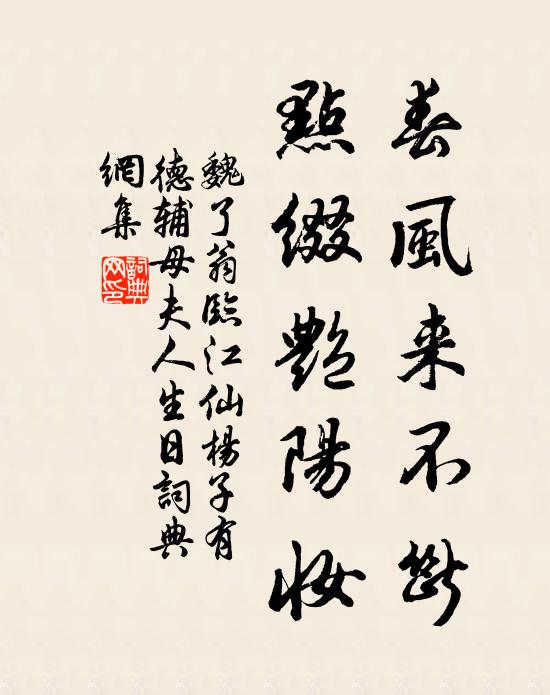 春風来不斷
點綴艷陽妝
魏了翁臨江仙楊子有
德輔母夫人生日詞典
網集
詞典網印